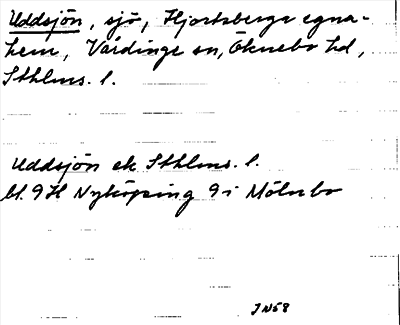 Uddsjön, sjö, Hjortsberga egna-
hem, Vårdinge sn, Öknebo hd,
Sthlms. l.
Uddsjön ek Sthlms. l.
bl. 9H Nyköping 9i Mölnbo
JN58